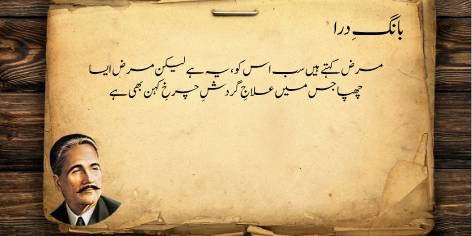 بانگِ درا
مرض کہتے ہیں سب اس کو، یہ ہے لیکن مرض ایسا
چھپا جس میں علاجِ گردشِ چرخِ کہن بھی ہے